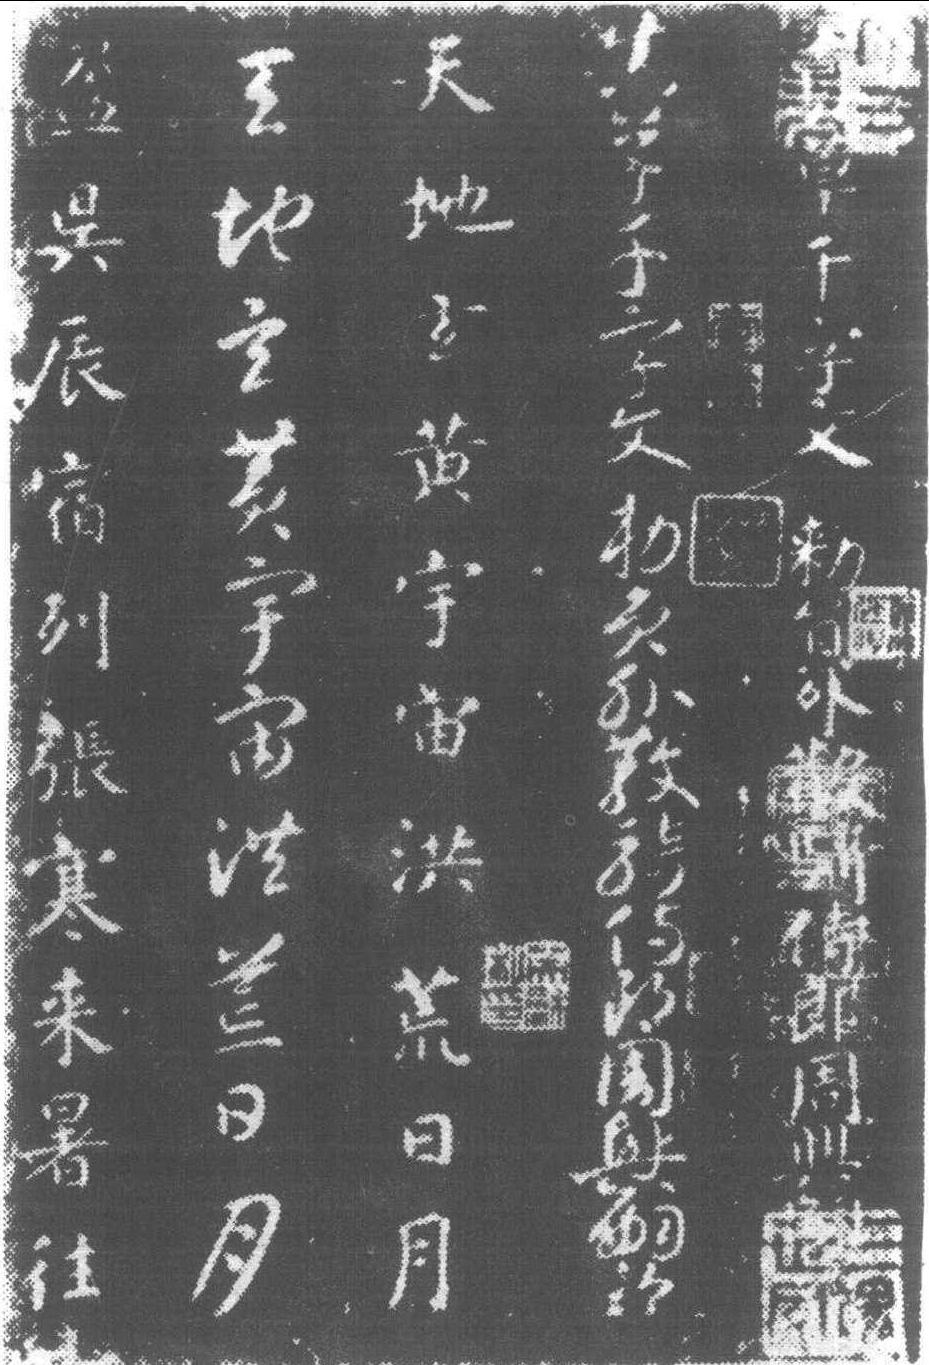 草千字文 勅員外散騎侍郎周興
千字文 勅員外散騎侍郎周興嗣次
天地玄黄宇宙洪荒日月
天地玄黄宇宙洪荒日月
盈昃辰宿列張寒来暑往